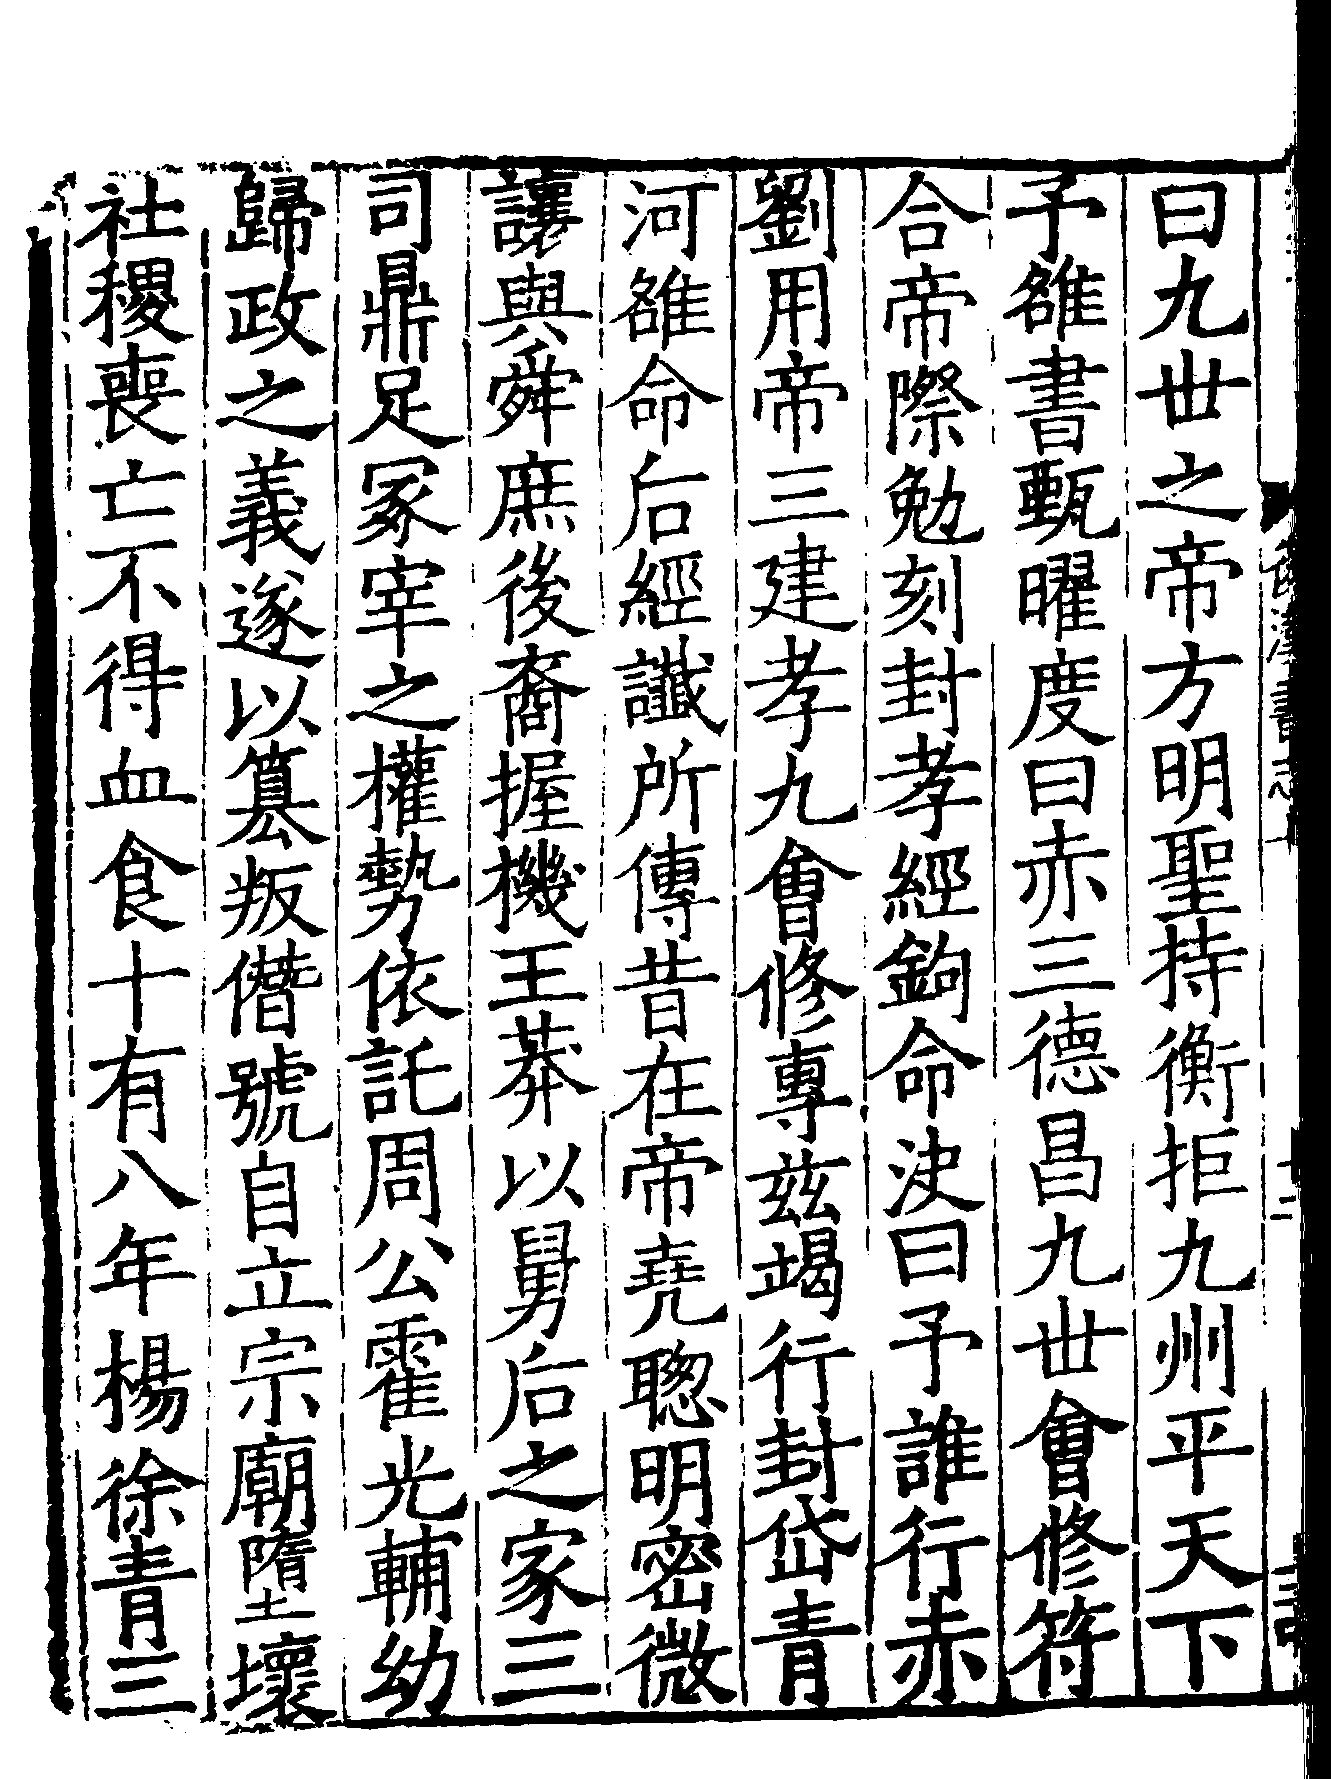 曰九世之帝方明聖持衡拒九州平天下
予雒書甄曜度曰赤三德昌九世會修符
合帝際勉刻封孝經鉤命決曰予誰行赤
劉用帝三建孝九會修專兹竭行封岱青
河雒命后經讖所傳昔在帝堯聰明密微
讓與舜庶後裔握機王莽以舅后之家三
司鼎足冢宰之權勢依託周公霍光輔幼
歸政之義遂以篡叛僭號自立宗廟隋土壞
社稷喪亡不得血食十有八年楊徐青三